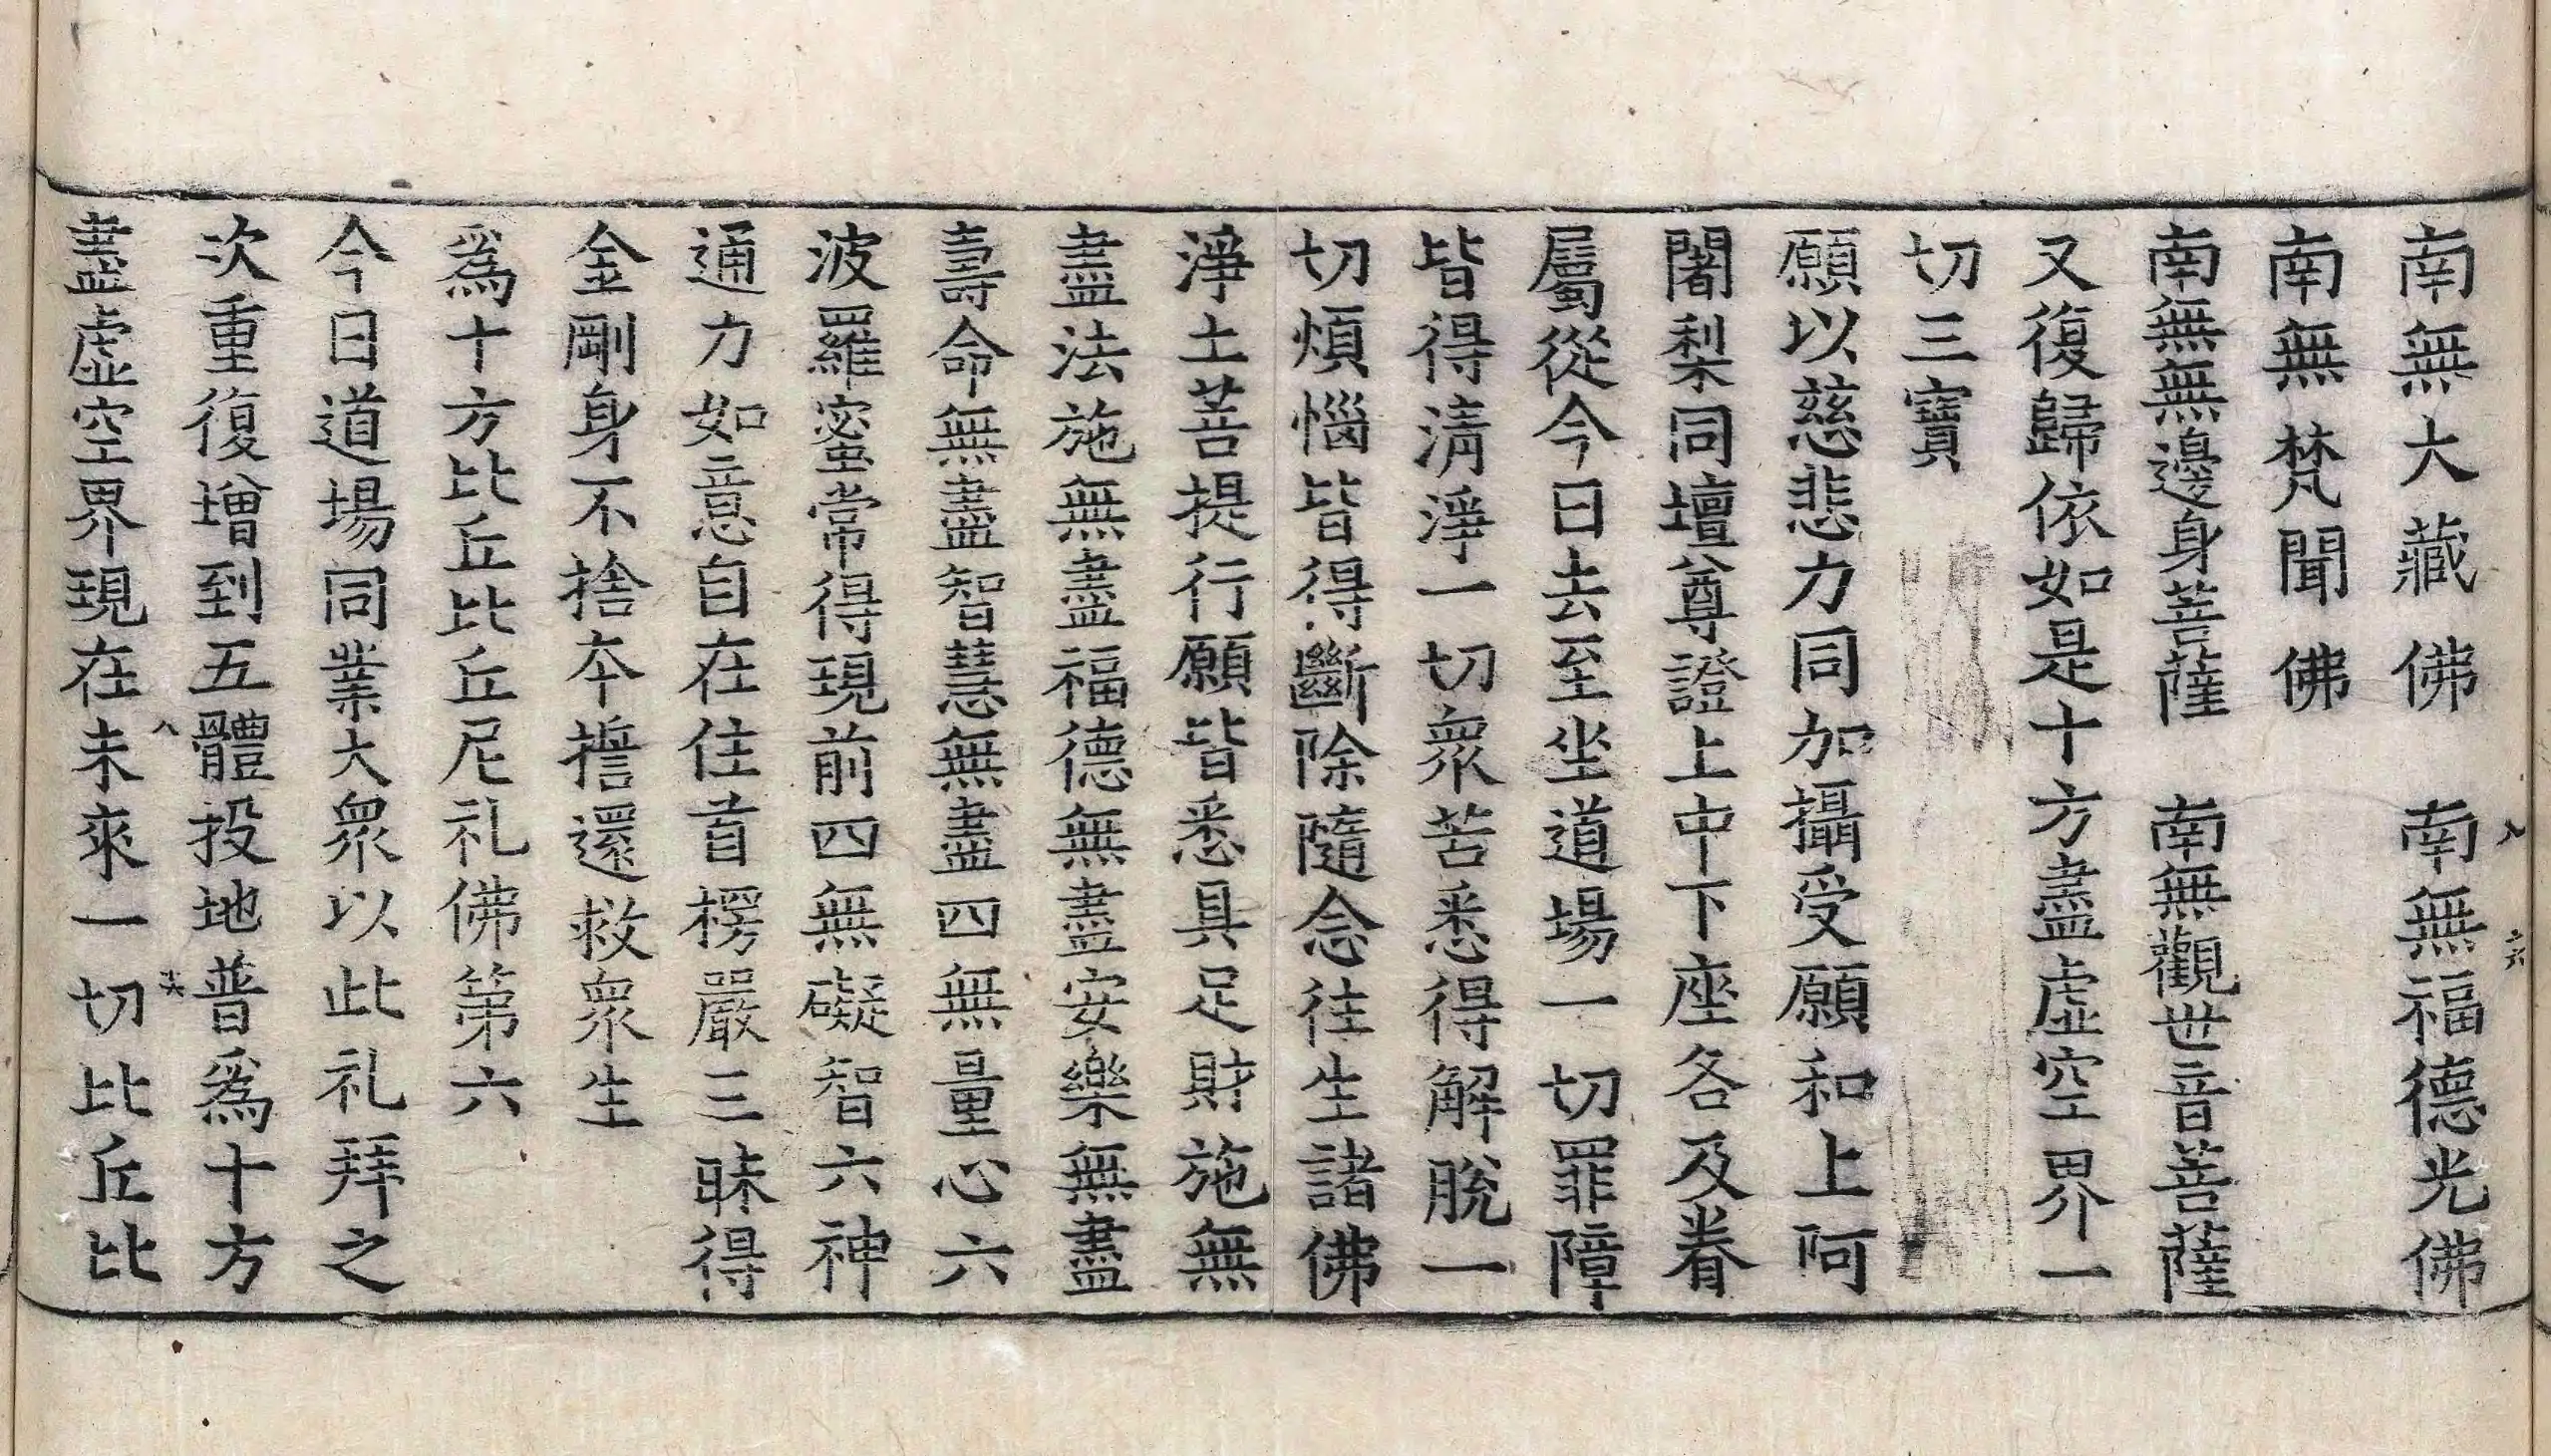 南無大藏佛　南無福德光佛
南無梵聞佛
南無無邊身菩薩　南無觀世音菩薩
又復歸依如是十方盡虛空界一
切三寶
願以慈悲力同加攝受願和上阿
闍梨同壇尊證上中下座各及眷
屬從今日去至坐道場一切罪障
皆得清淨一切衆苦悉得解脫一
切煩惱皆得斷除隨念往生諸佛
淨土菩提行願皆悉具足財施無
盡法施無盡福德無盡安樂無盡
壽命無盡智慧無盡四無量心六
波羅蜜常得現前四無礙智六神
通力如意自在住首楞嚴三昧得
金剛身不捨本誓還救衆生
爲十方比丘比丘尼礼佛第六
今日道場同業大衆以此礼拜之
次重復增到五體投地普爲十方
盡虛空界現在未來一切比丘比
八
六
八
十六